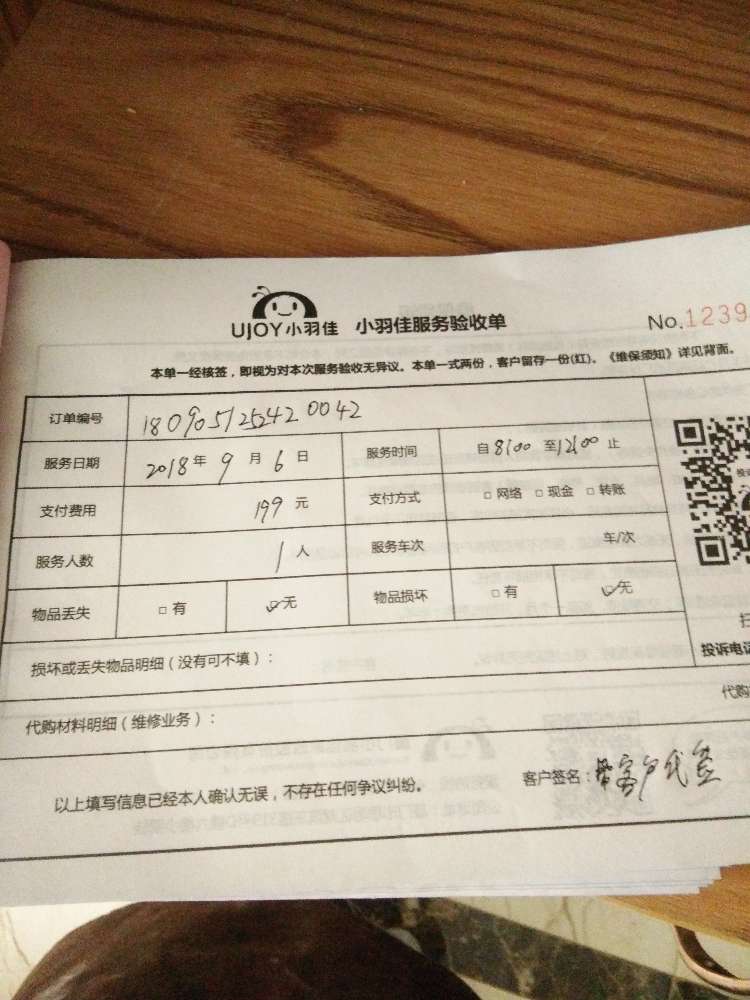 UJOY小羽佳 小羽佳服务验收单 No.1239
本单一经核签，即视为对本次服务验收无异议。本单一式两份，客户留存一份(红)。《维保须知》详见背面。
订单编号 1809051252420042
服务日期 2018年9月6日 服务时间 自8:00至12:00止
支付费用 199元 支付方式 □网络 □现金 □转账
服务人数 1人 服务车次 车/次
物品丢失 □有 ☑无 物品损坏 □有 ☑无
损坏或丢失物品明细（没有可不填）：
投诉电话
代购材料明细（维修业务）： 代购
以上填写信息已经本人确认无误，不存在任何争议纠纷。 客户签名：帮客户代签